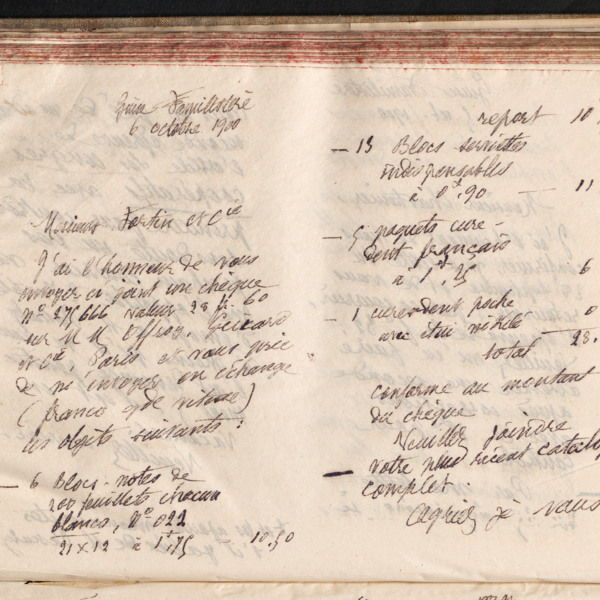 Guise Familistère
6 octobre 1900
Messieurs Fortin et Cie
J'ai l'honneur de vous
envoyer ci joint un chèque
n° 275666 valeur 28 fr. 60
sur MM Offroy, Guiard
et Cie, Paris et vous prie
de m'envoyer en échange
(franco gde vitesse)
les objets suivants :
— 6 Blocs-notes de
200 feuillets chacun
blancs, N° 022
21 x 12 à 1f,75 — 10.50
report 10
— 13 Blocs serviettes
indispensables
à 0f.90 — 11
— 5 paquets cure-
dent français
à 1f,25 6
— 1 curedent poche
avec étui nickelé 0
total 28.
conforme au montant
du chèque
Veuillez joindre
— votre plus récent catal
complet.
Agréez je vous